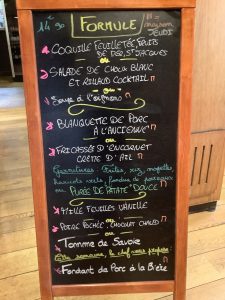 14€90
FORMULE
JEUDI
COQUILLE FEUILLETÉE, FRUITS
DE MER, ST JACQUES
ou
SALADE DE CHOUX BLANC
ET RILLAUD COCKTAIL
ou
Soupe à l'oignons
BLANQUETTE DE PORC
À L'ANCIENNE
ou
FRICASSÉE D'ENCORNET
CRÈME D'AIL
Garnitures: Frites, riz, nouilles
haricots verts, fondue de poireaux
ou PURÉE DE PATATE DOUCE
MILLE FEUILLES VANILLE
ou
POIRE POCHÉE, CHOCOLAT CHAUD
ou
Tomme de Savoie
Cette semaine, le chef vous propose:
Fondant de Porc à la Bière